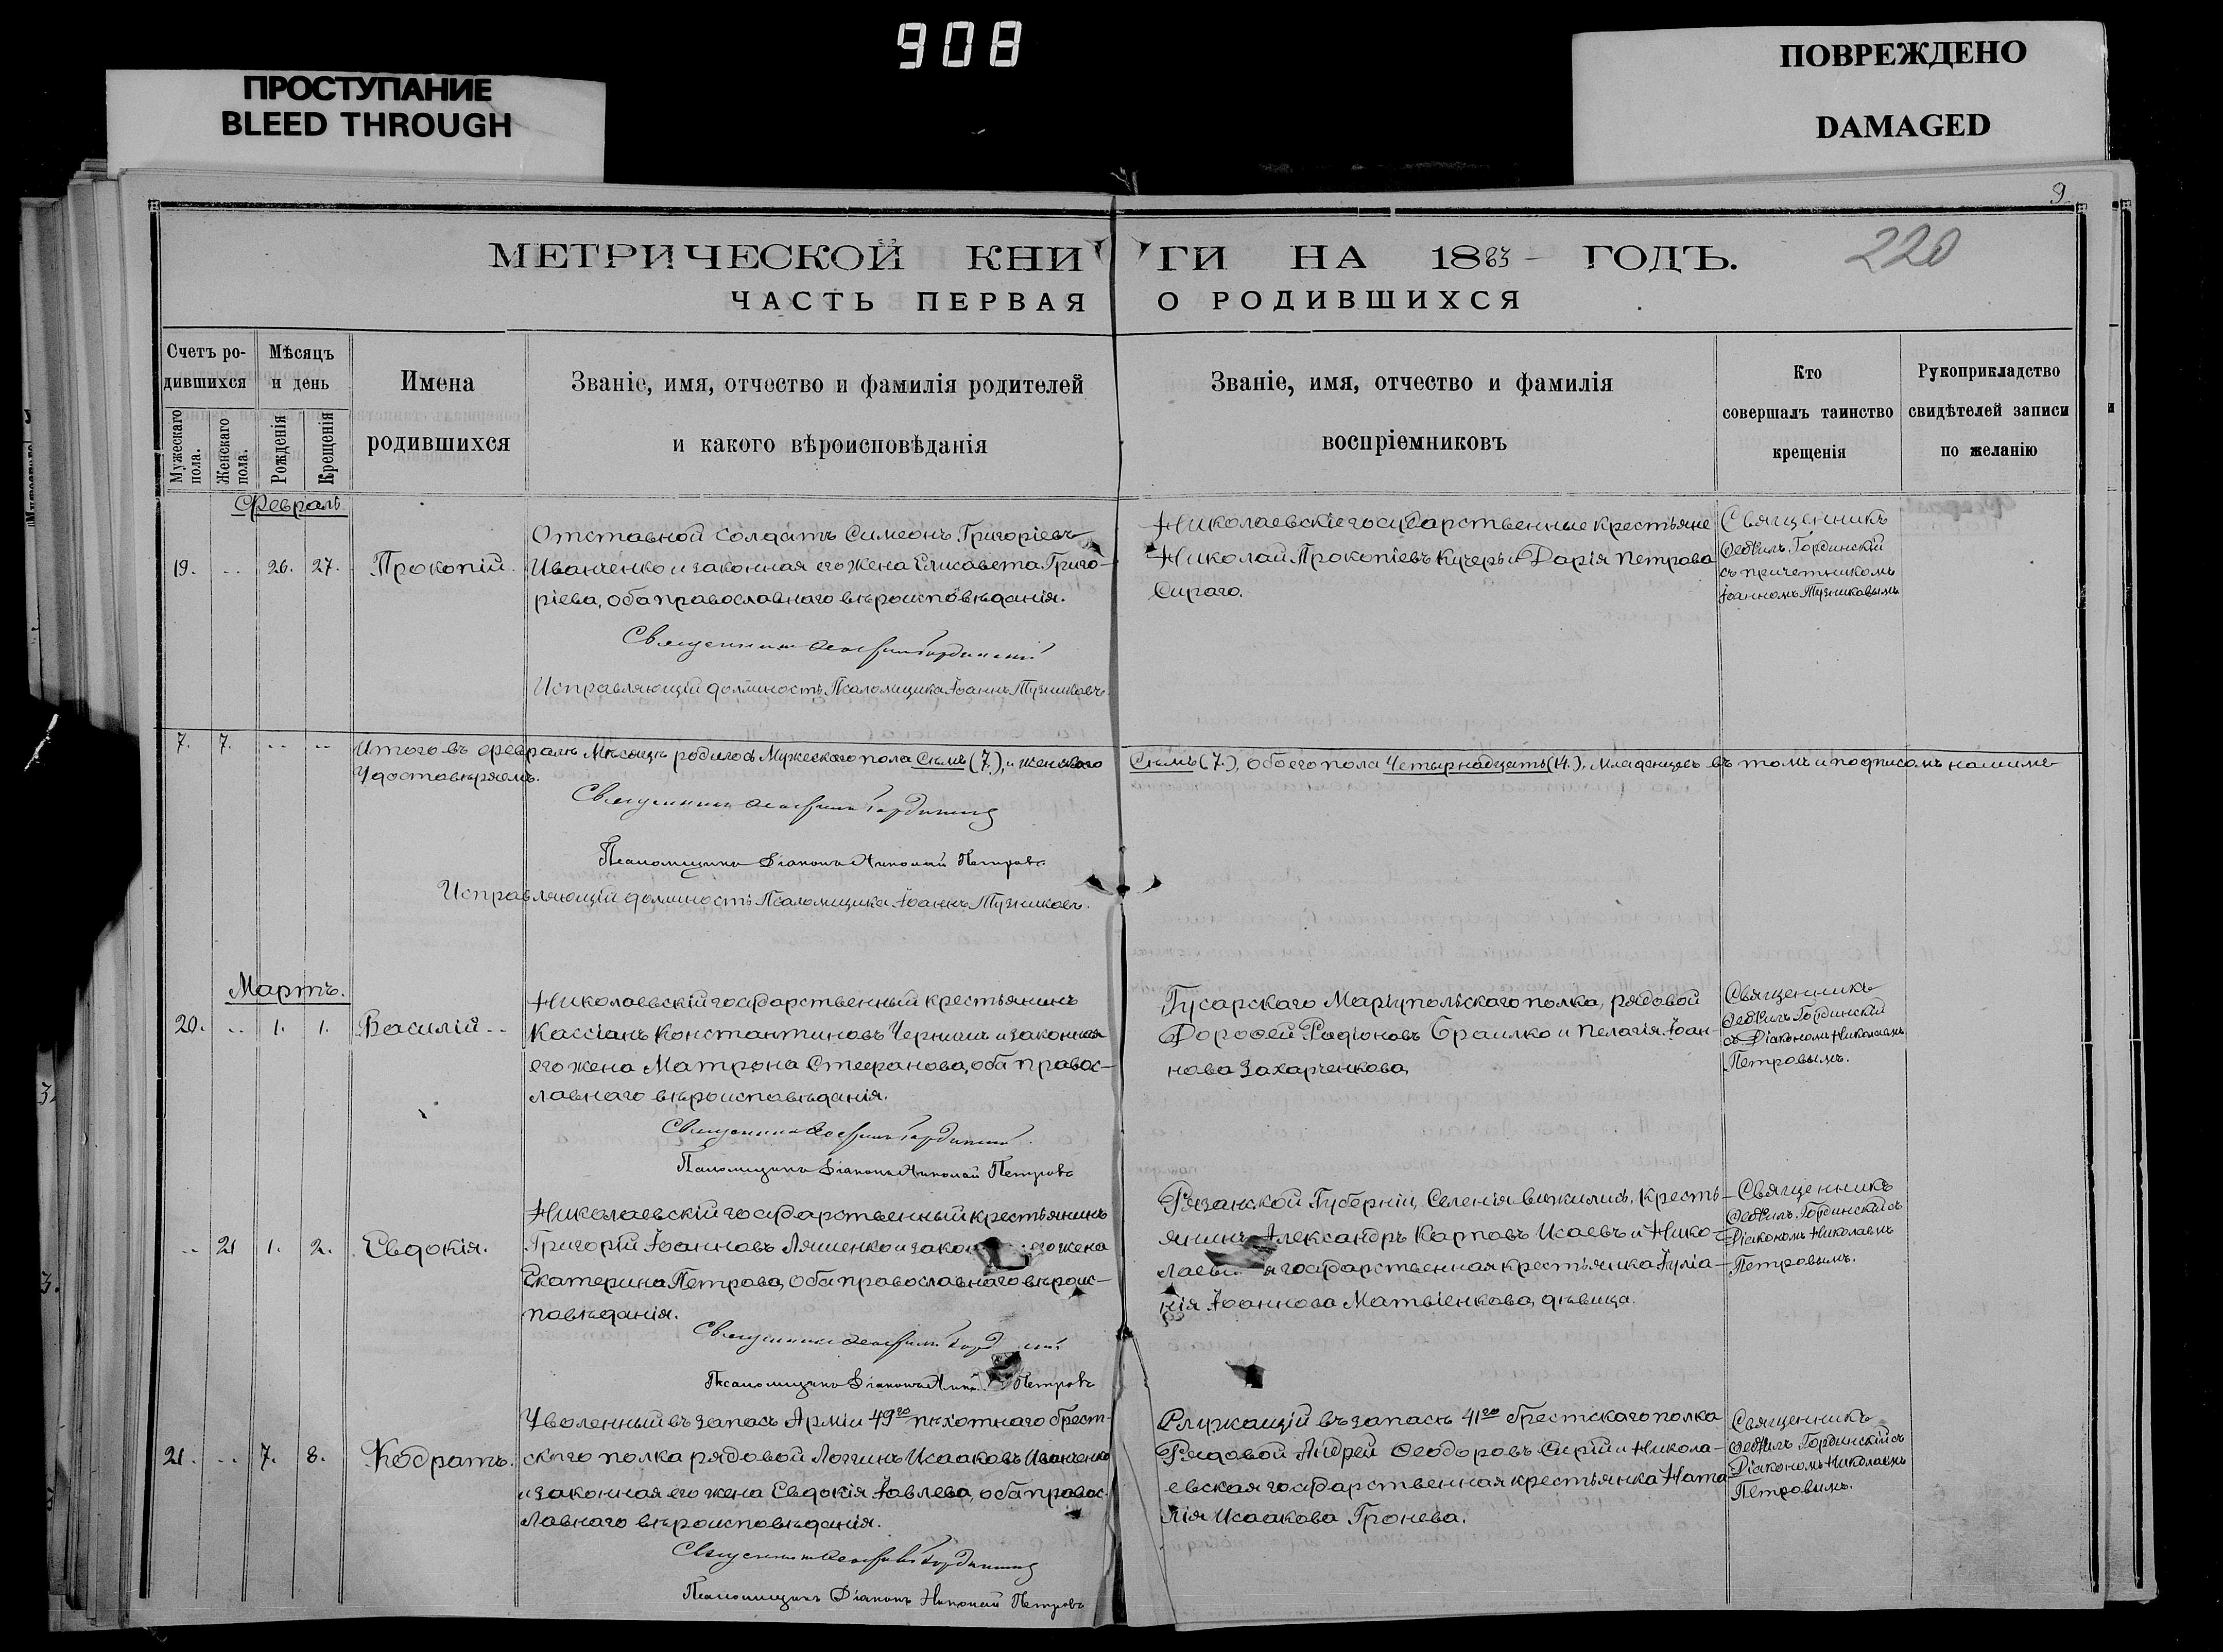 908
ПРОСТУПАНИЕ
BLEED THROUGH
ПОВРЕЖДЕНО
DAMAGED
9
220
МЕТРИЧЕСКОЙ КНИГИ НА 1883 ГОДЪ.
ЧАСТЬ ПЕРВАЯ О РОДИВШИХСЯ
Счетъ ро-
дившихся
Мужескаго пола.
Женскаго пола.
Мѣсяцъ
и день
Рожденія
Крещенія
Имена
родившихся
Званіе, имя, отчество и фамилія родителей
и какого вѣроисповѣданія
Званіе, имя, отчество и фамилія
воспріемниковъ
Кто
совершалъ таинство
крещенія
Рукоприкладство
свидѣтелей записи
по желанію
Февраль
19. .. 26. 27. Прокопій.
Отставной солдатъ Симеонъ Григоріевъ
Иванченко и законная его жена Елисавета Григо-
ріева, оба православнаго вѣроисповѣданія.
Николаевскіе государственные крестьяне
Николай Прокопіевъ Кучеръ и Дарія Петрова
Сираго.
Священникъ
Ѳеофилъ Гординскій
съ причетникомъ
Іоанномъ Тузниковымъ
Священникъ Ѳеофилъ Гординскій
Исправляющій должность Псаломщика Іоаннъ Тузниковъ.
7. 7. .. ..
Итого въ февралѣ мѣсяцѣ родилось Мужескаго пола Семь (7.), и женскаго Семь (7.), обоего пола Четырнадцать (14.), младенцевъ въ томъ и подписомъ нашимъ
Удостовѣряемъ.
Священникъ Ѳеофилъ Гординскій
Псаломщикъ Діаконъ Николай Петровъ
Исправляющій должность Псаломщика Іоаннъ Тузниковъ.
Мартъ.
20. .. 1. 1. Василій ..
Николаевскій государственный крестьянинъ
Кассіанъ Константиновъ Чернышъ и законная
его жена Матрона Стефанова, оба правос-
лавнаго вѣроисповѣданія.
Гусарскаго Маріупольскаго полка, рядовой
Дороѳей Радіоновъ Браилко и Пелагія Іоан-
нова Захарченкова,
Священникъ
Ѳеофилъ Гординскій
съ Діакономъ Николаемъ
Петровымъ.
Священникъ Ѳеофилъ Гординскій.
Псаломщикъ Діаконъ Николай Петровъ
.. 21 1. 2. Евдокія.
Николаевскій государственный крестьянинъ
Григорій Іоанновъ Ляшенко и зако его жена
Екатерина Петрова, оба православнаго вѣроис-
повѣданія.
Рязанской Губерніи, Селенія крестъ-
янинъ Александръ Карповъ Исаевъ и Нико-
лаевская государственная крестьянка Іуліа-
нія Іоаннова Матвіенкова, дѣвица.
Священникъ
Ѳеофилъ Гординскій съ
Діакономъ Николаемъ
Петровымъ.
Священникъ Ѳеофилъ Горд скій
Псаломщикъ Діаконъ Нико Петровъ
21. .. 7. 8. Кодратъ.
Уволенный въ запасъ Арміи 49го пѣхотнаго Брест-
скаго полка рядовой Логгинъ Исааковъ Иванченко
и законная его жена Евдокія Іовлева, оба правос-
лавнаго вѣроисповѣданія.
Служащій въ запасѣ 41го Брестскаго полка
Рядовой Андрей Ѳеодоровъ Сирій и Никола-
евская государственная крестьянка Ната-
лія Исаакова Гронева.
Священникъ
Ѳеофилъ Гординскій съ
Діакономъ Николаемъ
Петровымъ.
Священникъ Ѳеофилъ Гординскій
Псаломщикъ Діаконъ Николай Петровъ